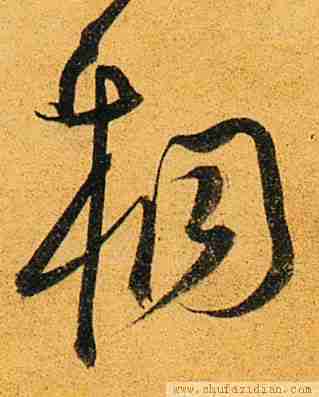 桐
www.shufazidian.com